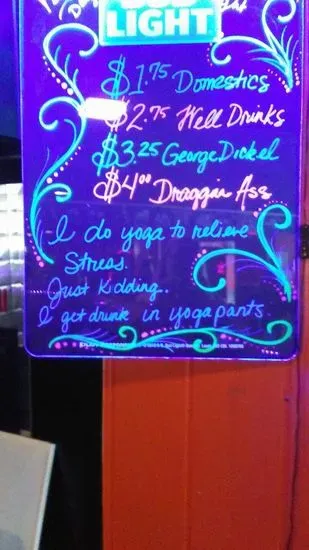 LIGHT
$1.75 Domestics
$2.75 Well Drinks
$3.25 George Dickel
$4.00 Draggan Ass
I do yoga to relieve
Stress.
Just Kidding..
I get drunk in yoga pants